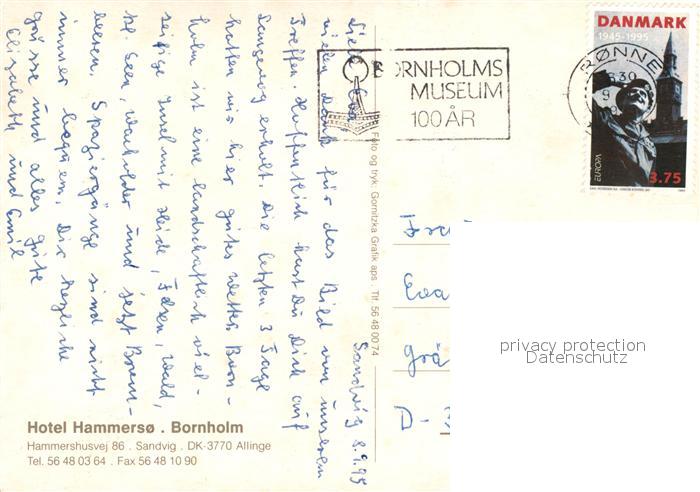 Sandvig 8.9.95
Liebe Eva
vielen Dank für das Bild von unserem
Treffen. Hoffentlich hast Du Dich auf
Langeoog erholt. Die letzten 3 Tage
hatten wir hier gutes Wetter. Born-
holm ist eine landschaftlich viel-
seitige Insel mit Heide, Felsen, Wald,
kl. Seen, Wacholder und jetzt Brom-
beeren. Spaziergänge sind nicht
immer bequem. Dir herzliche
Grüsse und alles Gute
Elisabeth und Emil
BORNHOLMS
MUSEUM
100 ÅR
RØNNE
DANMARK
1945-1995
EUROPA
3.75
Foto og tryk: Gornitzka Grafik aps . Tlf. 56 48 00 74
Eva
D-
privacy protection
Datenschutz
Hotel Hammersø . Bornholm
Hammershusvej 86 . Sandvig . DK-3770 Allinge
Tel. 56 48 03 64 . Fax 56 48 10 90